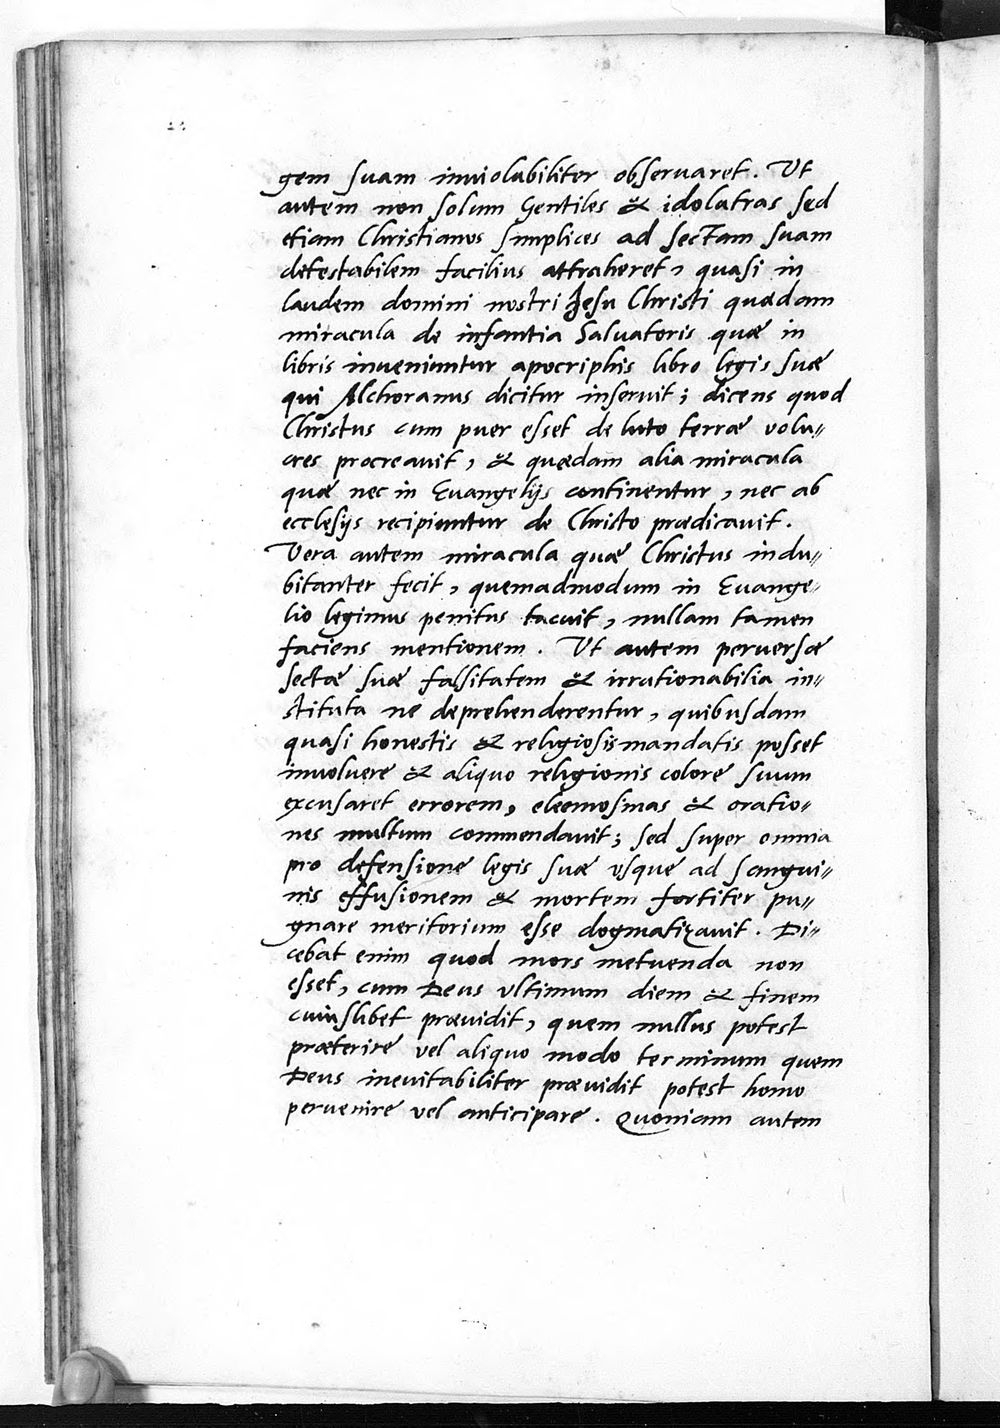 gem suam inviolabiliter observaret. Ut
autem non solum Gentiles & idolatras sed
etiam Christianos simplices ad sectam suam
detestabilem facilius attraheret, quasi in
laudem domini nostri Jesu Christi quædam
miracula de infantia Salvatoris quæ in
libris inveniuntur apocriphis libro legis suæ
qui Alchoranus dicitur inseruit; dicens quod
Christus cum puer esset de luto terræ volu〃
cres procreauit, & quædam alia miracula
quæ nec in Euangelijs continentur, nec ab
ecclesijs recipiuntur de Christo prædicauit.
Vera autem miracula quæ Christus indu〃
bitanter fecit, quemadmodum in Euange〃
lio legimus penitus tacuit, nullam tamen
faciens mentionem. Ut autem peruersæ
sectæ suæ falsitatem & irrationabilia in〃
stituta ne deprehenderentur, quibusdam
quasi honestis & religiosis mandatis posset
inuoluere & aliquo religionis colore suum
excusaret errorem, eleemosinas & oratio〃
nes multum commendauit; sed super omnia
pro defensione legis suæ vsque ad sangui〃
nis effusionem & mortem fortiter pu〃
gnare meritorium esse dogmatizauit. Di〃
cebat enim quod mors metuenda non
esset, cum Deus vltimum diem & finem
cuiuslibet præuidit, quem nullus potest
præterire vel aliquo modo terminum quem
Deus ineuitabiliter præuidit potest homo
peruenire vel anticipare. Quoniam autem